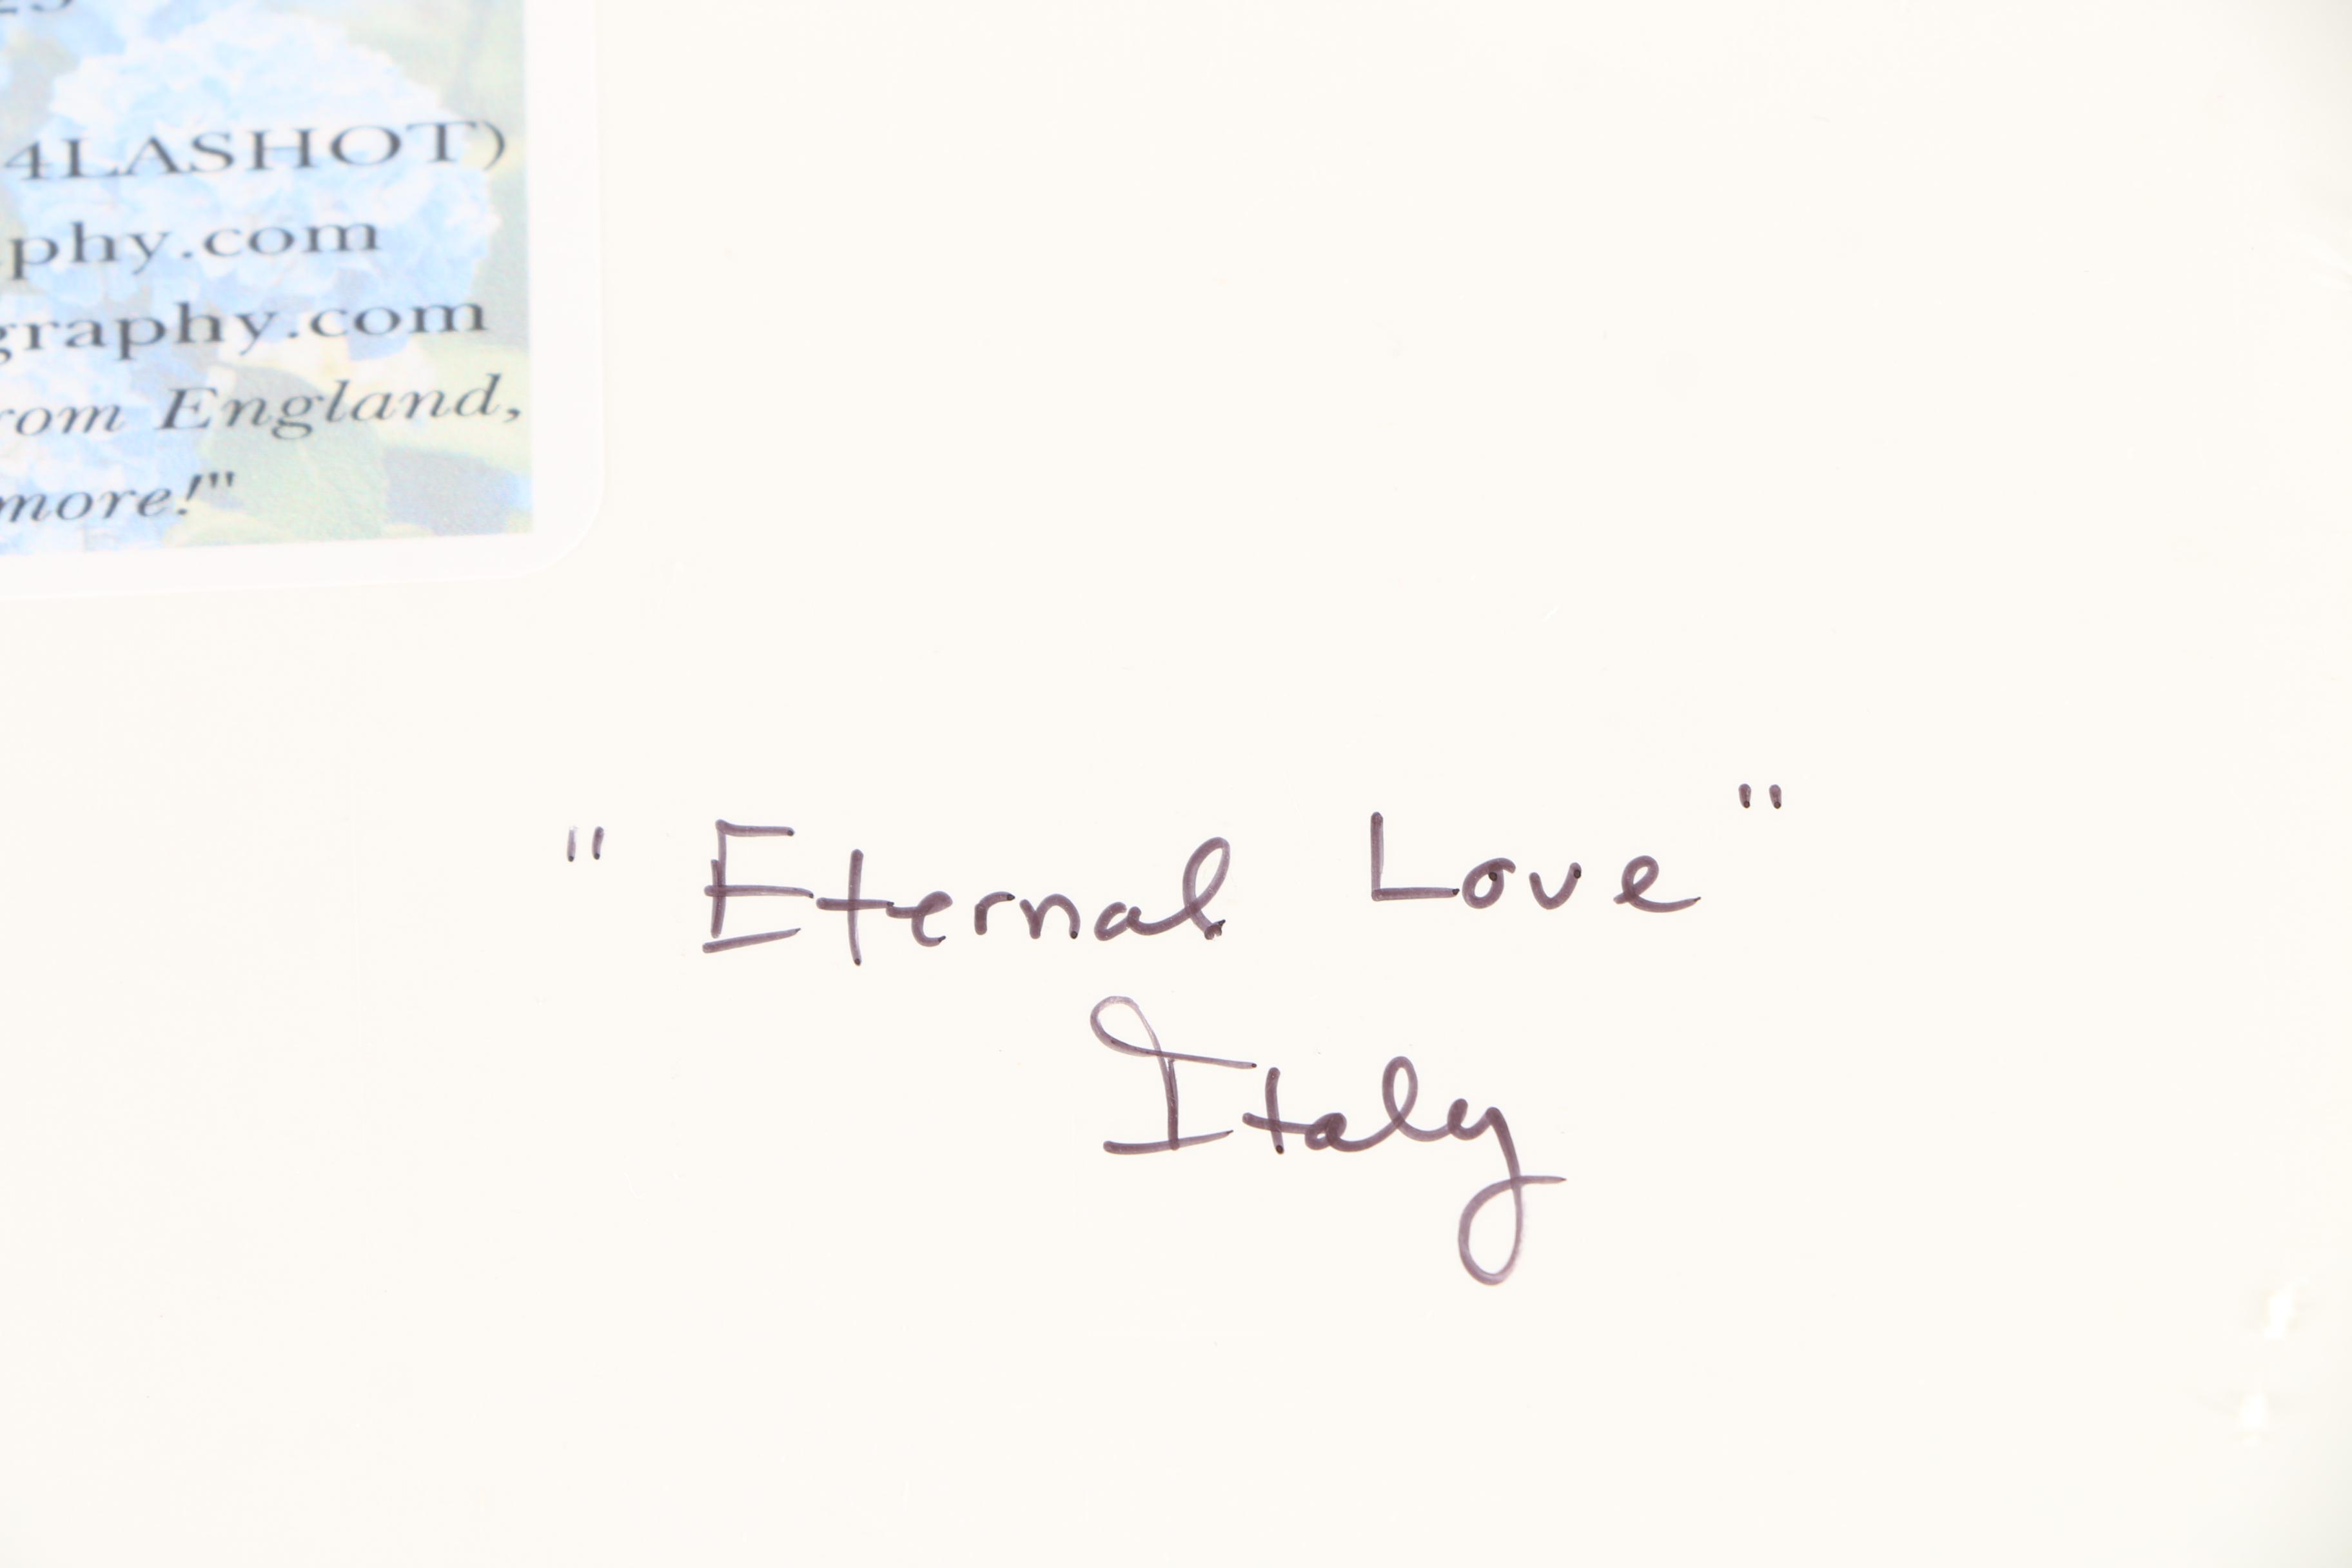 4LASHOT)
phy.com
graphy.com
rom England,
more!"
" Eternal Love "
Italy